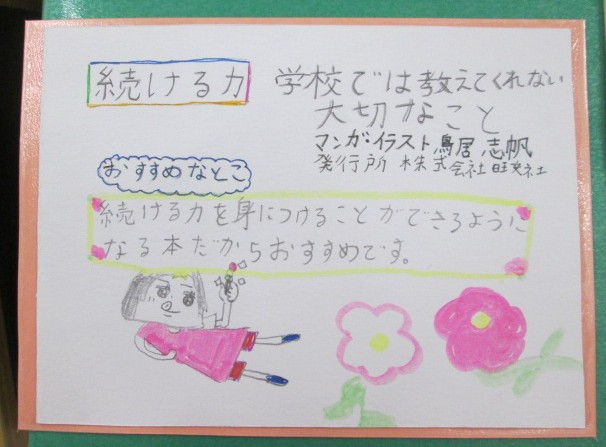 続ける力
学校では教えてくれない
大切なこと
マンガ・イラスト 鳥居 志帆
発行所 株式会社旺文社
おすすめなとこ
続ける力を身につけることができるように
なる本だからおすすめです。